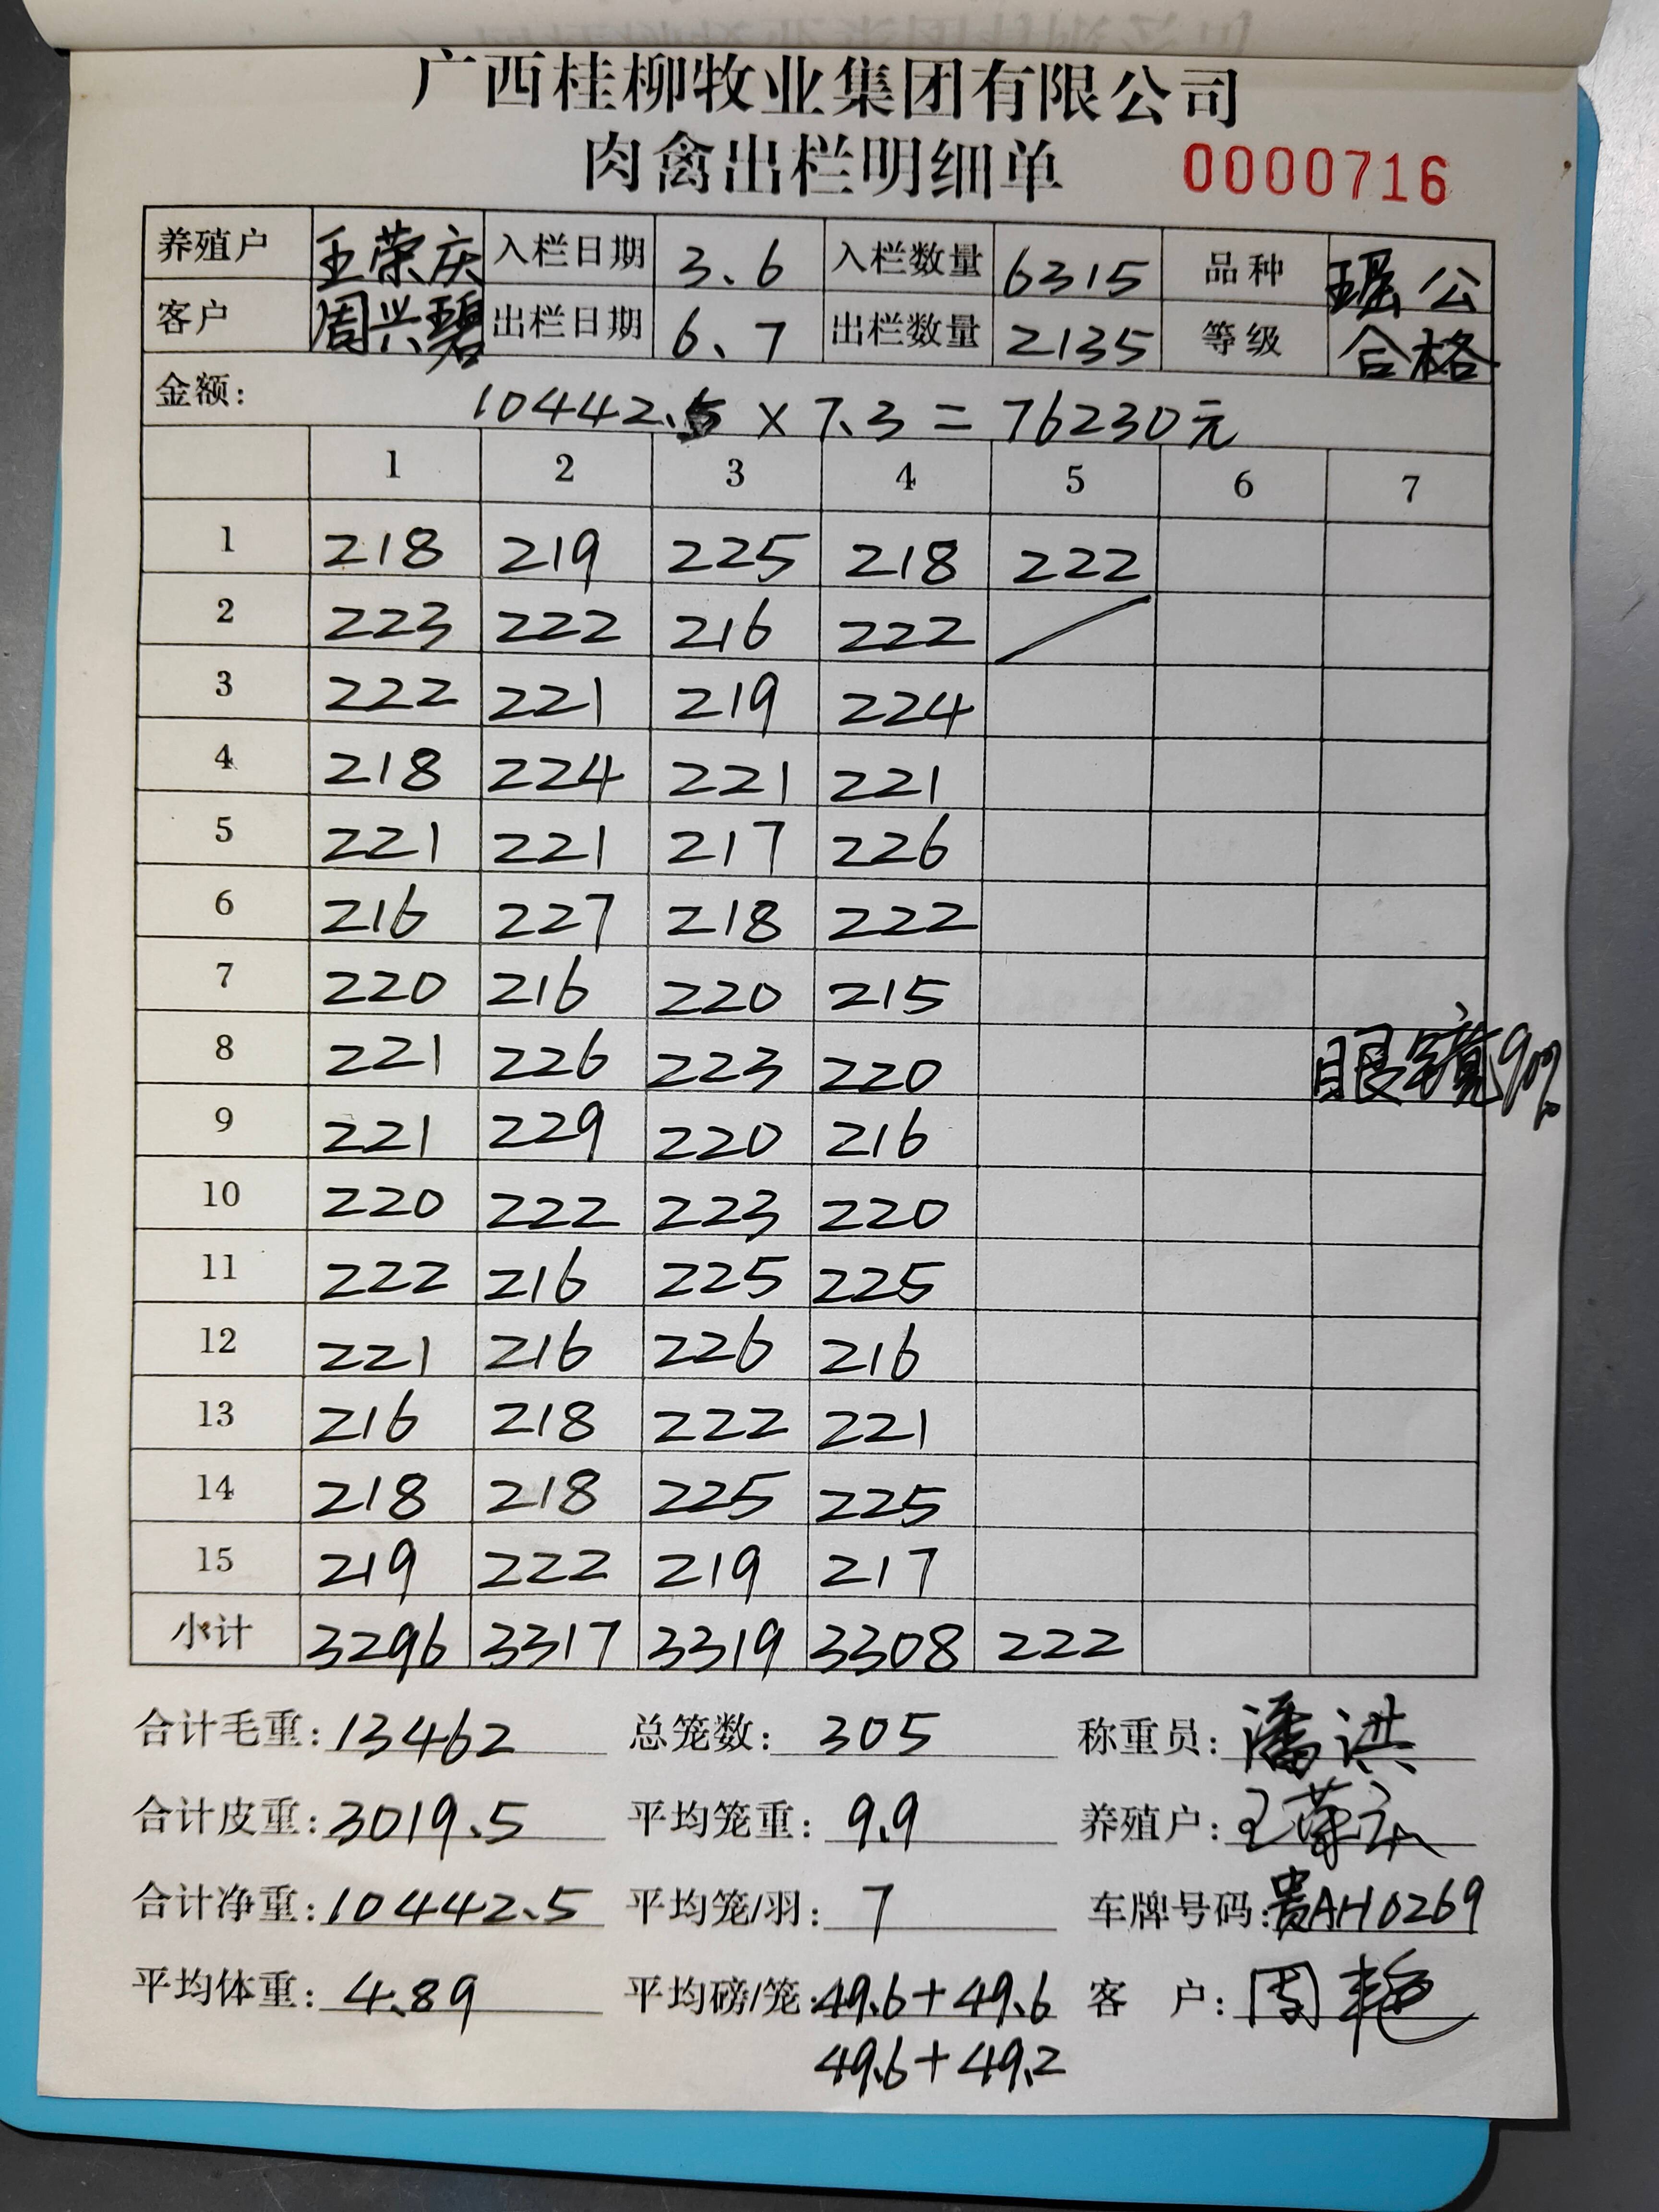 广西桂柳牧业集团有限公司
肉禽出栏明细单 0000716
养殖户 王荣庆 入栏日期 3.6 入栏数量 6315 品种 瑶公
客户 周兴碧 出栏日期 6.7 出栏数量 2135 等级 合格
金额: 10442.5 × 7.3 = 76230元
1 2 3 4 5 6 7
1 218 219 225 218 222
2 223 222 216 222
3 222 221 219 224
4 218 224 221 221
5 221 221 217 226
6 216 227 218 222
7 220 216 220 215
8 221 226 223 220 眼镜90%
9 221 229 220 216
10 220 222 223 220
11 222 216 225 225
12 221 216 226 216
13 216 218 222 221
14 218 218 225 225
15 219 222 219 217
小计 3296 3317 3319 3308 222
合计毛重: 13462 总笼数: 305 称重员: 潘洪
合计皮重: 3019.5 平均笼重: 9.9 养殖户: 王荣庆
合计净重: 10442.5 平均笼/羽: 7 车牌号码: 贵AH0269
平均体重: 4.89 平均磅/笼: 49.6+49.6 客 户: 周艳
49.6+49.2